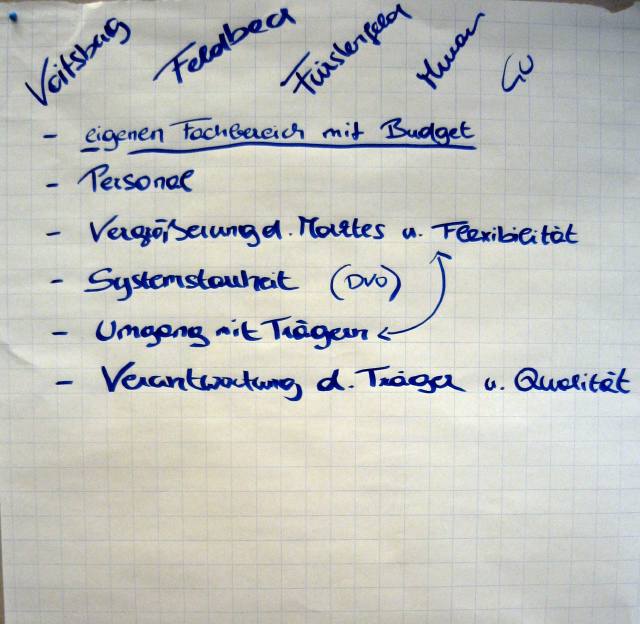 Voitsberg Feldbach Fürstenfeld Murau GU
- eigenen Fachbereich mit Budget
- Personal
- Vergrößerung d. Marktes u. Flexibilität
- Systemstarrheit (DVO)
- Umgang mit Trägern
- Verantwortung d. Träger u. Qualität